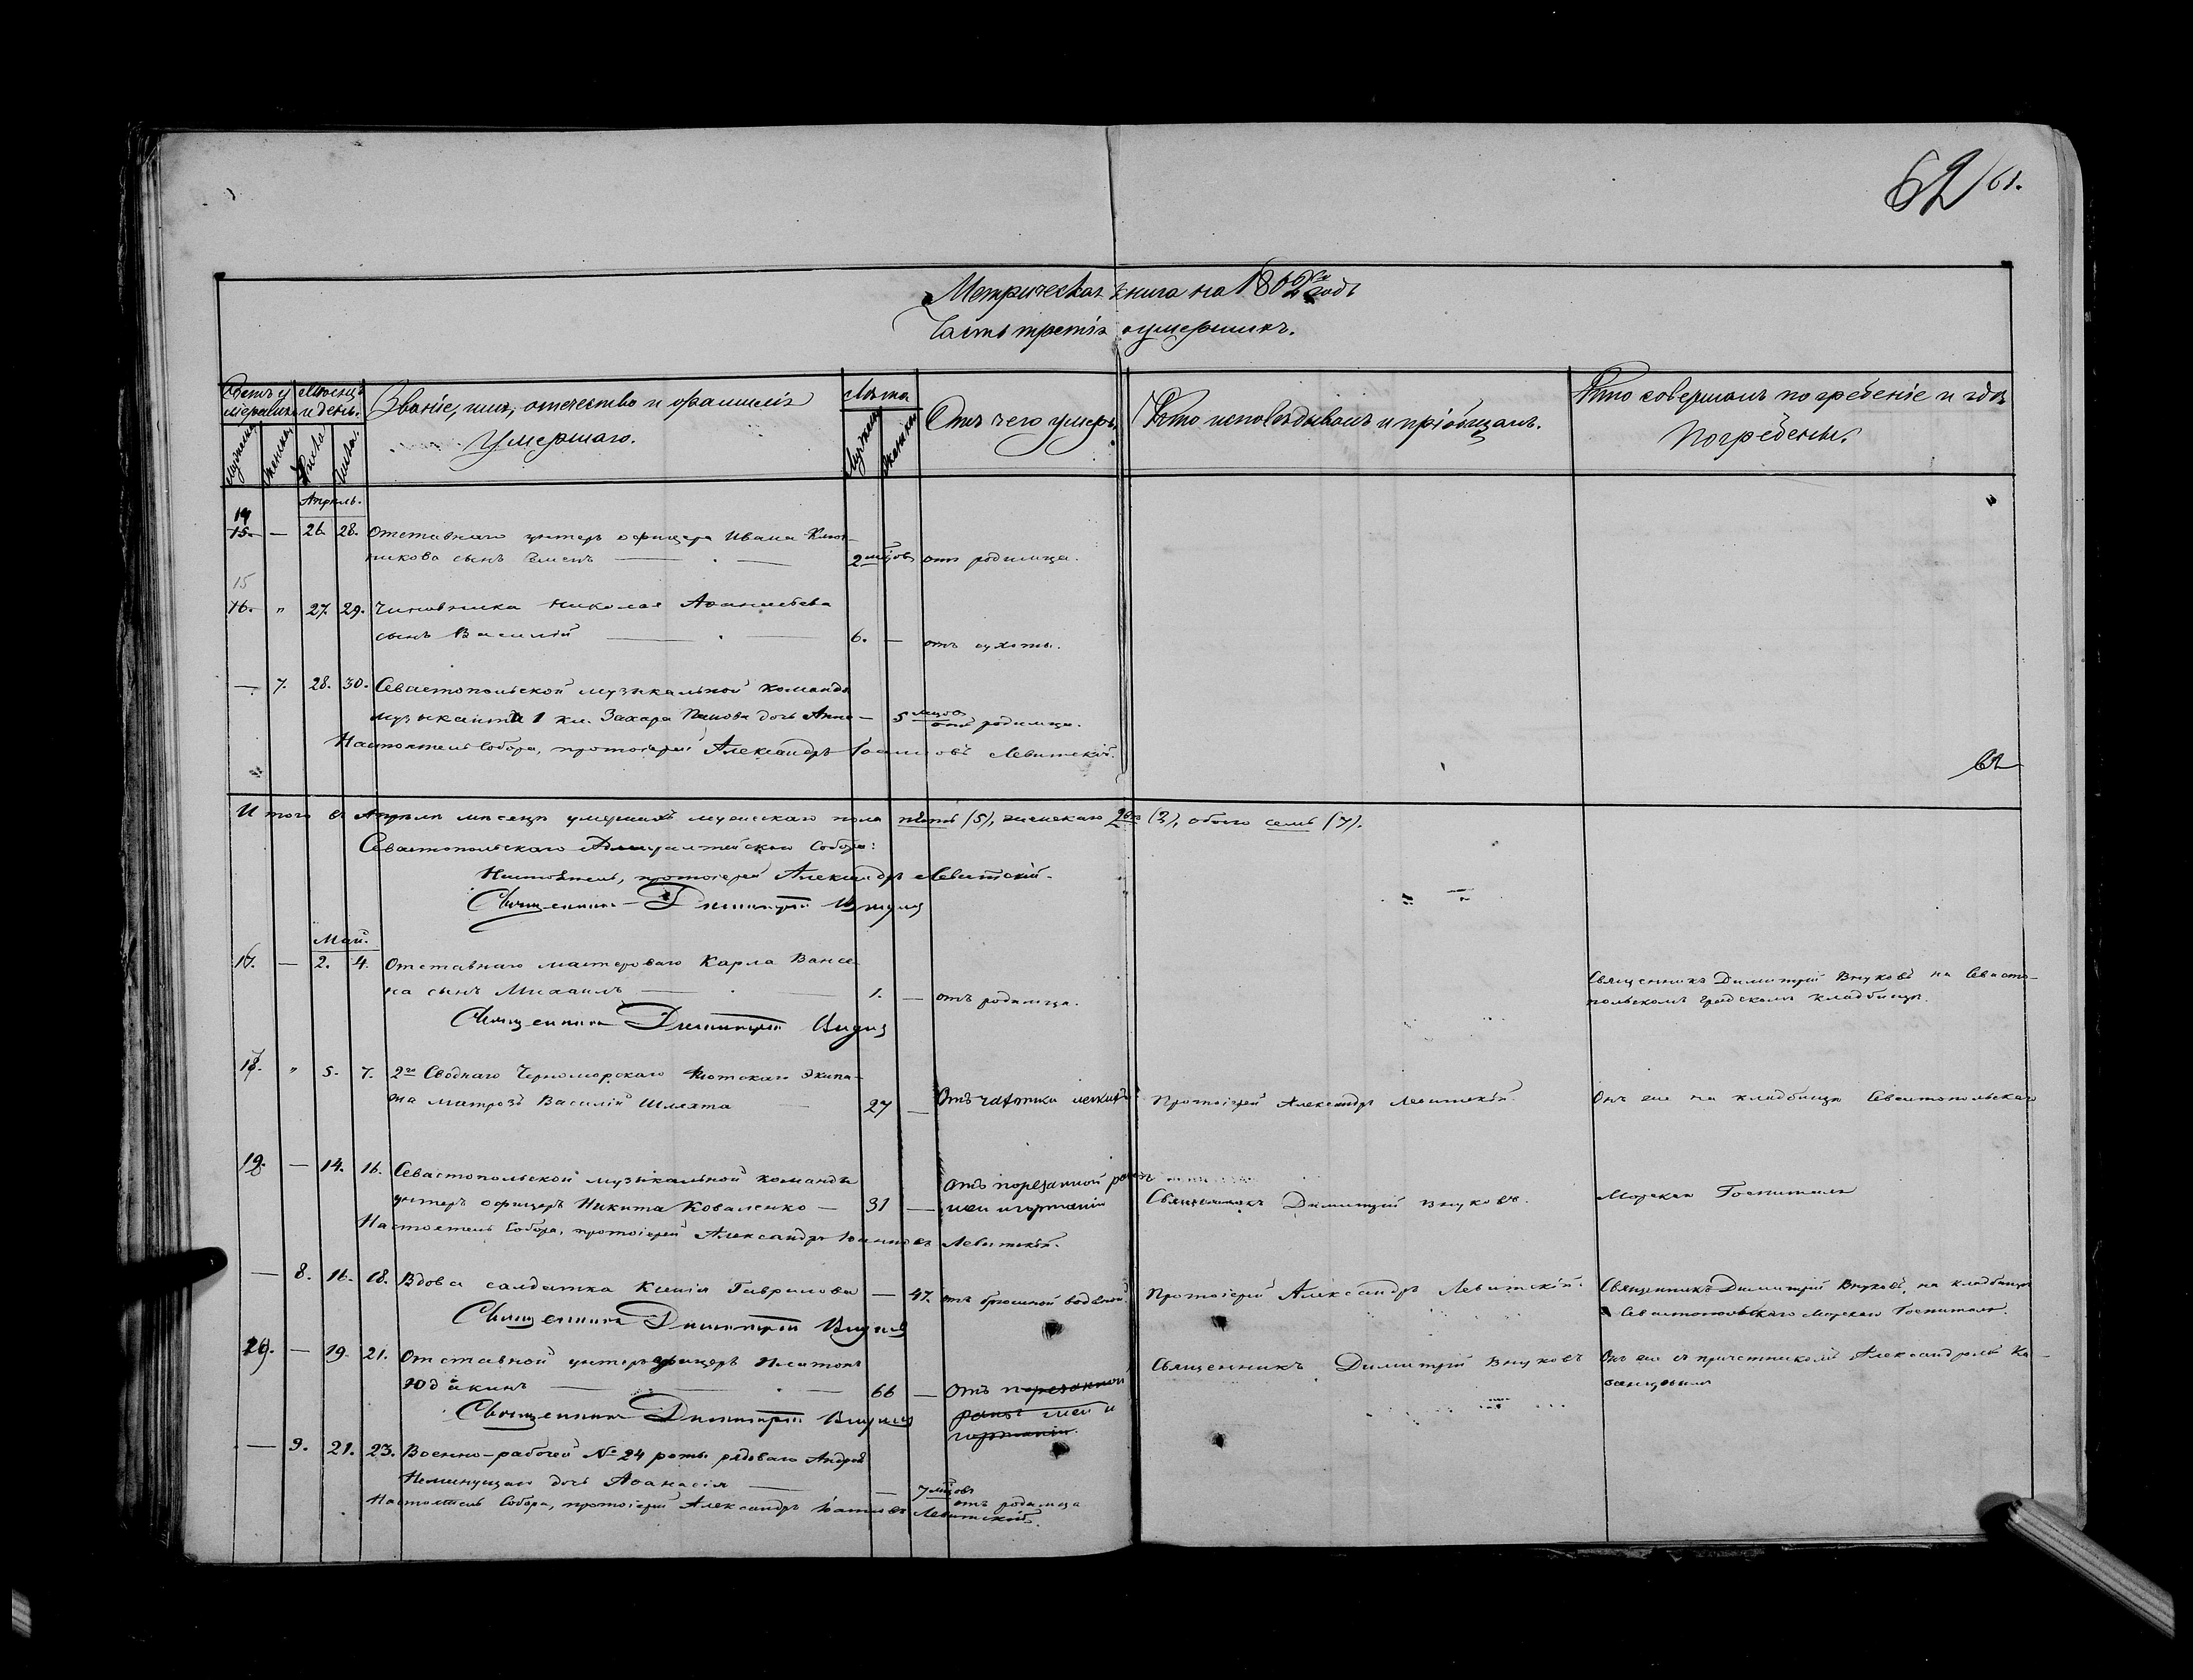 62 61.
Метрическая книга на 1866й годъ
Часть третія о умершихъ.
Счетъ умершихъ
Мѣсяцъ и день.
Званіе, имя, отечество и фамилія
умершаго.
Лѣта
Отъ чего умеръ.
Кто исповѣдывалъ и пріобщалъ.
Кто совершалъ погребеніе и гдѣ
погребены.
Апрѣль.
14
15. — 26 28. Отставнаго унтеръ офицера Ивана
никова сынъ Семенъ — 2 мцовъ отъ родимца.
15
16. " 27. 29. Чиновника Николая Аѳанасьева
сынъ Василій — 6. — отъ сухоты.
— 7. 28. 30. Севастопольской музыкальной команды
музыканта 1 кл. Захара Панова дочь Анна — 5 мцов отъ родимца.
Настоятель Собора, протоіерей Александръ Іоанновъ Левитскій.
62
Итого въ Апрѣлѣ мѣсяцѣ умершихъ мужескаго пола пять (5), женскаго два (2), обоего семь (7).
Севастопольскаго Адмиралтейскаго Собора:
Настоятель, протоіерей Александръ Левитскій.
Священникъ Димитрій Внуковъ
Май.
16. — 2. 4. Отставнаго мастероваго Карла Вансе-
на сынъ Михаилъ — 1. — отъ родимца.
Священникъ Димитрій Внуковъ на Севасто-
польскомъ градскомъ кладбищѣ.
Священникъ Димитрій Внуковъ
17. " 5. 7. 2го Своднаго Черноморскаго Флотскаго Экипа-
жа матрозъ Василій Шляхта — 27 — Отъ чахотки легкихъ Протоіерей Александръ Левитскій. Онъ же на кладбищѣ Севастопольскаго
18. — 14. 16. Севастопольской музыкальной команды
унтеръ офицеръ Никита Коваленко — 31 — отъ порезанной раны
шеи и гортаніи Священникъ Димитрій Внуковъ. Морскаго Госпиталя
Настоятель Собора, протоіерей Александръ Іоанновъ Левитскій.
— 8. 16. 18. Вдова салдатка Ксенія Гаврилова — 47. отъ брюшной водяной. Протоіерей Александръ Левитскій. Священникъ Димитрій Внуковъ, на кладбищѣ
Севастопольскаго Морскаго Госпиталя.
Священникъ Димитрій Внуковъ
19. — 19. 21. Отставной унтеръ офицеръ Платонъ
Юдакинъ — 66 — Отъ порезанной
раны шеи и
гортаніи.
Священникъ Димитрій Внуковъ Онъ же съ причетникомъ Александромъ Ка-
занцовымъ
Священникъ Димитрій Внуковъ
— 9. 21. 23. Военно-рабочей № 24 роты рядоваго Андрея
Неминущаго дочь Аѳанасія — 7 мцовъ отъ родимца
Настоятель Собора, протоіерей Александръ Іоанновъ Левитскій.